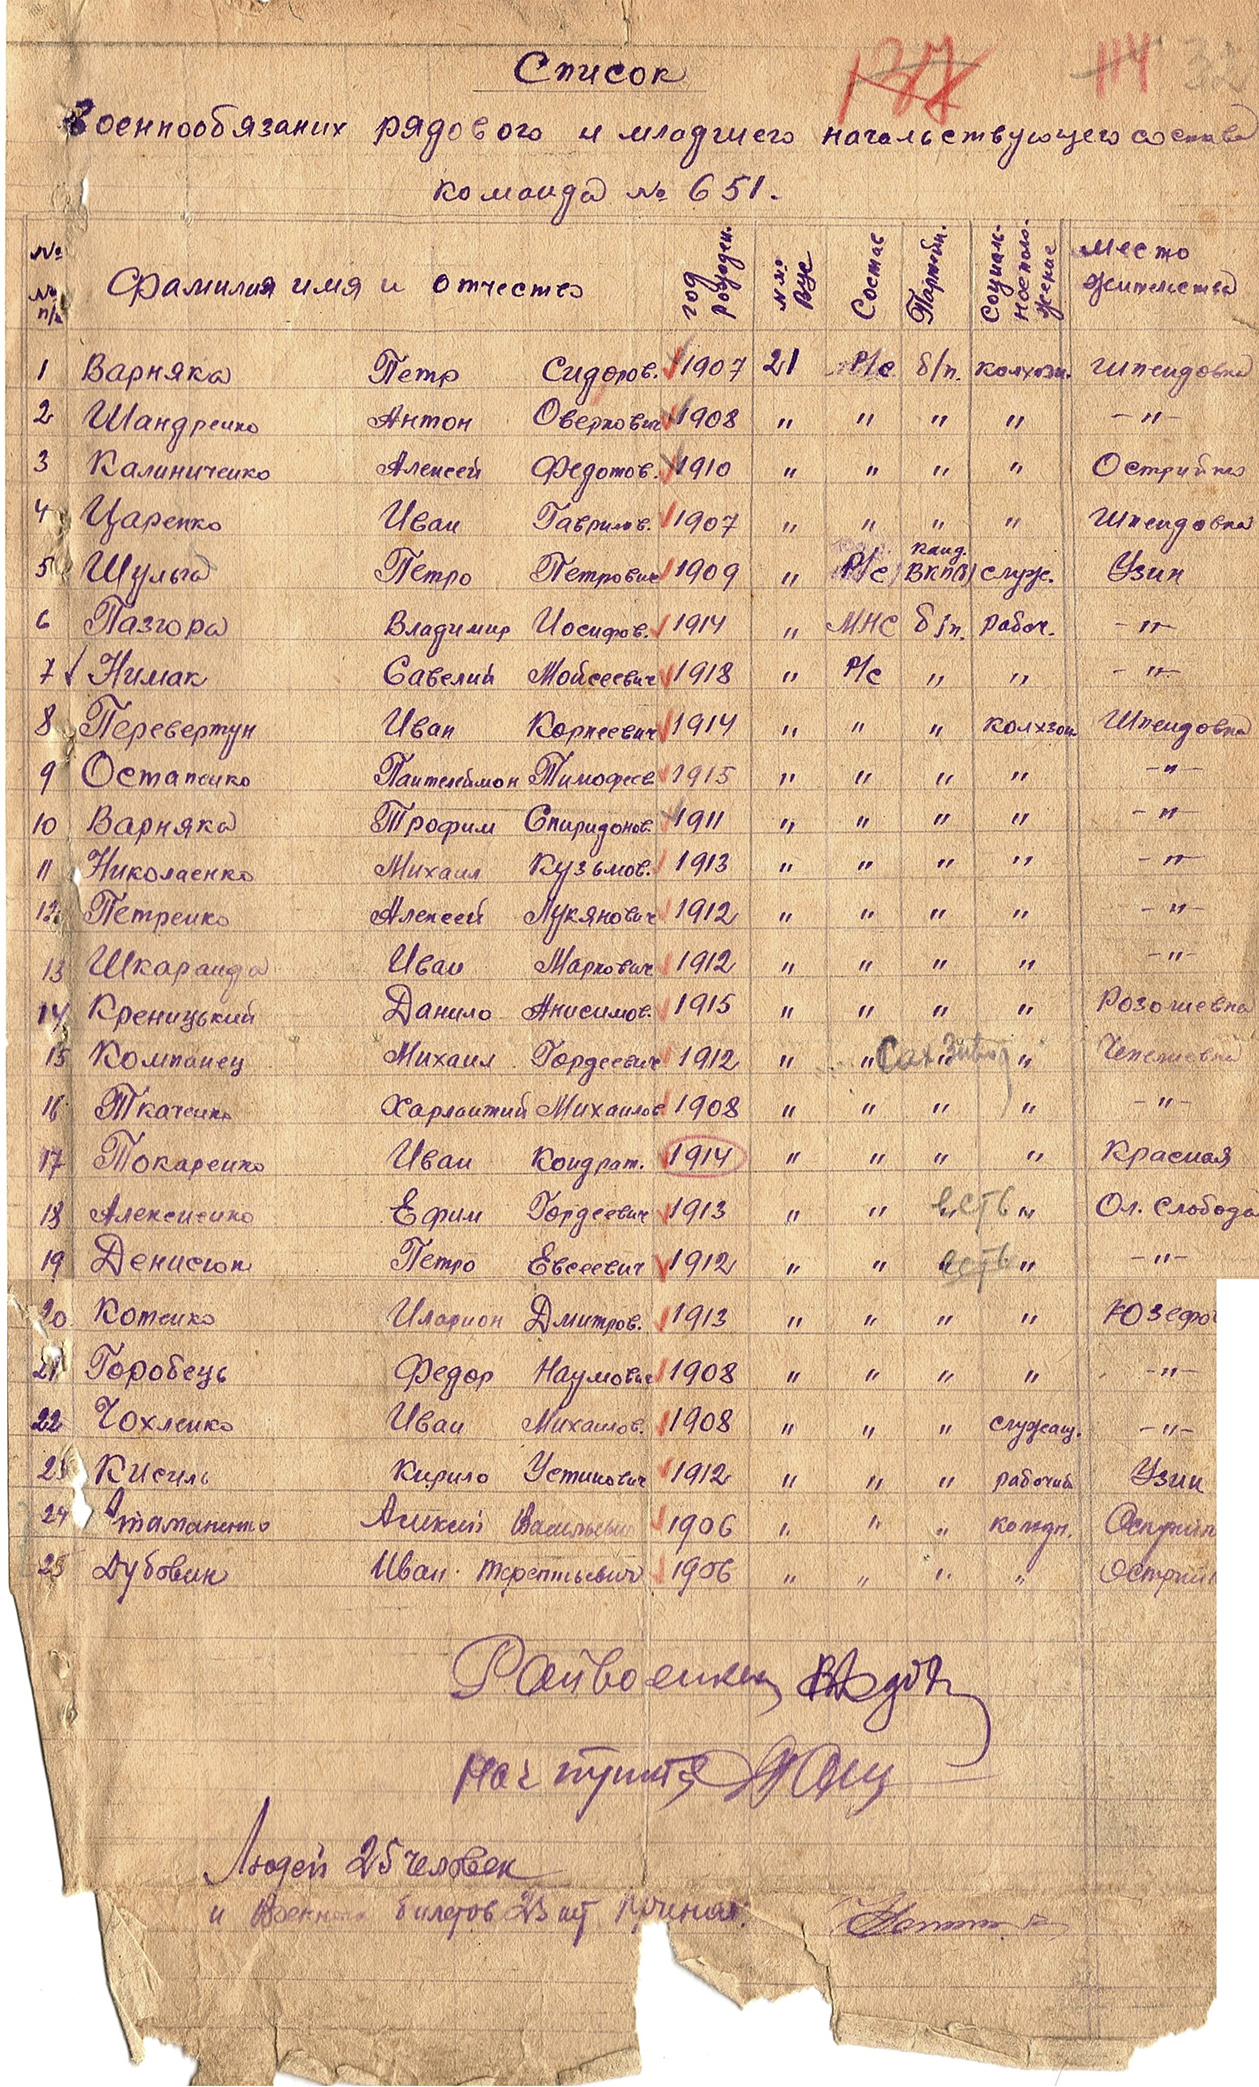 137 114 32
Список
Военнообязаних рядового и младшего начальствующего состава
команда № 651.
№ № п/п Фамилия имя и отчество год рожден. № № ВУС Состав Партейн. Социальное положение Место жительства
1 Варняка Петр Сидоров. 1907 21 Р/с б/п. колхозн. Шпендовка
2 Шандренко Антон Оверкович 1908 " " " " -"-
3 Калиниченко Алексей Федотов. 1910 " " " " Острийки
4 Царенко Иван Гаврилов. 1907 " " " " Шпендовка
5 Шульга Петро Петрович 1909 " Р/с канд. ВКП(б) служ. Узин
6 Пазгора Владимир Иосифов. 1914 " МНС б/п. рабоч. -"-
7 Нимак Савелий Мойсеевич 1918 " Р/с " " -"-
8 Перевертун Иван Корнеевич 1914 " " " колхзон. Шпендовка
9 Остапенко Пантелеймон Тимофеев 1915 " " " " -"-
10 Варняка Трофим Спиридонов. 1911 " " " " -"-
11 Николаенко Михаил Кузьмов. 1913 " " " " -"-
12 Петренко Алексей Лукянович 1912 " " " " -"-
13 Шкаранда Иван Маркович 1912 " " " " -"-
14 Креницький Данило Анисимов. 1915 " " " " Розошевка
15 Компанец Михаил Гордеевич 1912 " " Сах Завод " " Чепелиевка
16 Ткаченко Харлантий Михаилов 1908 " " " " -"-
17 Токаренко Иван Кондрат. 1914 " " " " Красная
18 Алексиенко Ефим Гордеевич 1913 " " " есть " Ол. Слобода
19 Денисюк Петро Евсеевич 1912 " " " есть " -"-
20 Котенко Иларион Дмитров. 1913 " " " " Юзефов
21 Горобець Федор Наумович 1908 " " " " -"-
22 Чохленко Иван Михаилов. 1908 " " " служащ. -"-
23 Кисиль Кирило Устинович 1912 " " " рабочий Узин
24 Атаманенко Алексей Васильевич 1906 " " " колхзн. Острийк
25 Дубовик Иван Терентьевич 1906 " " " " Острийк
Райвоенком
Нач пункта
Людей 25 человек
и Военных билетов 23 шт принял.